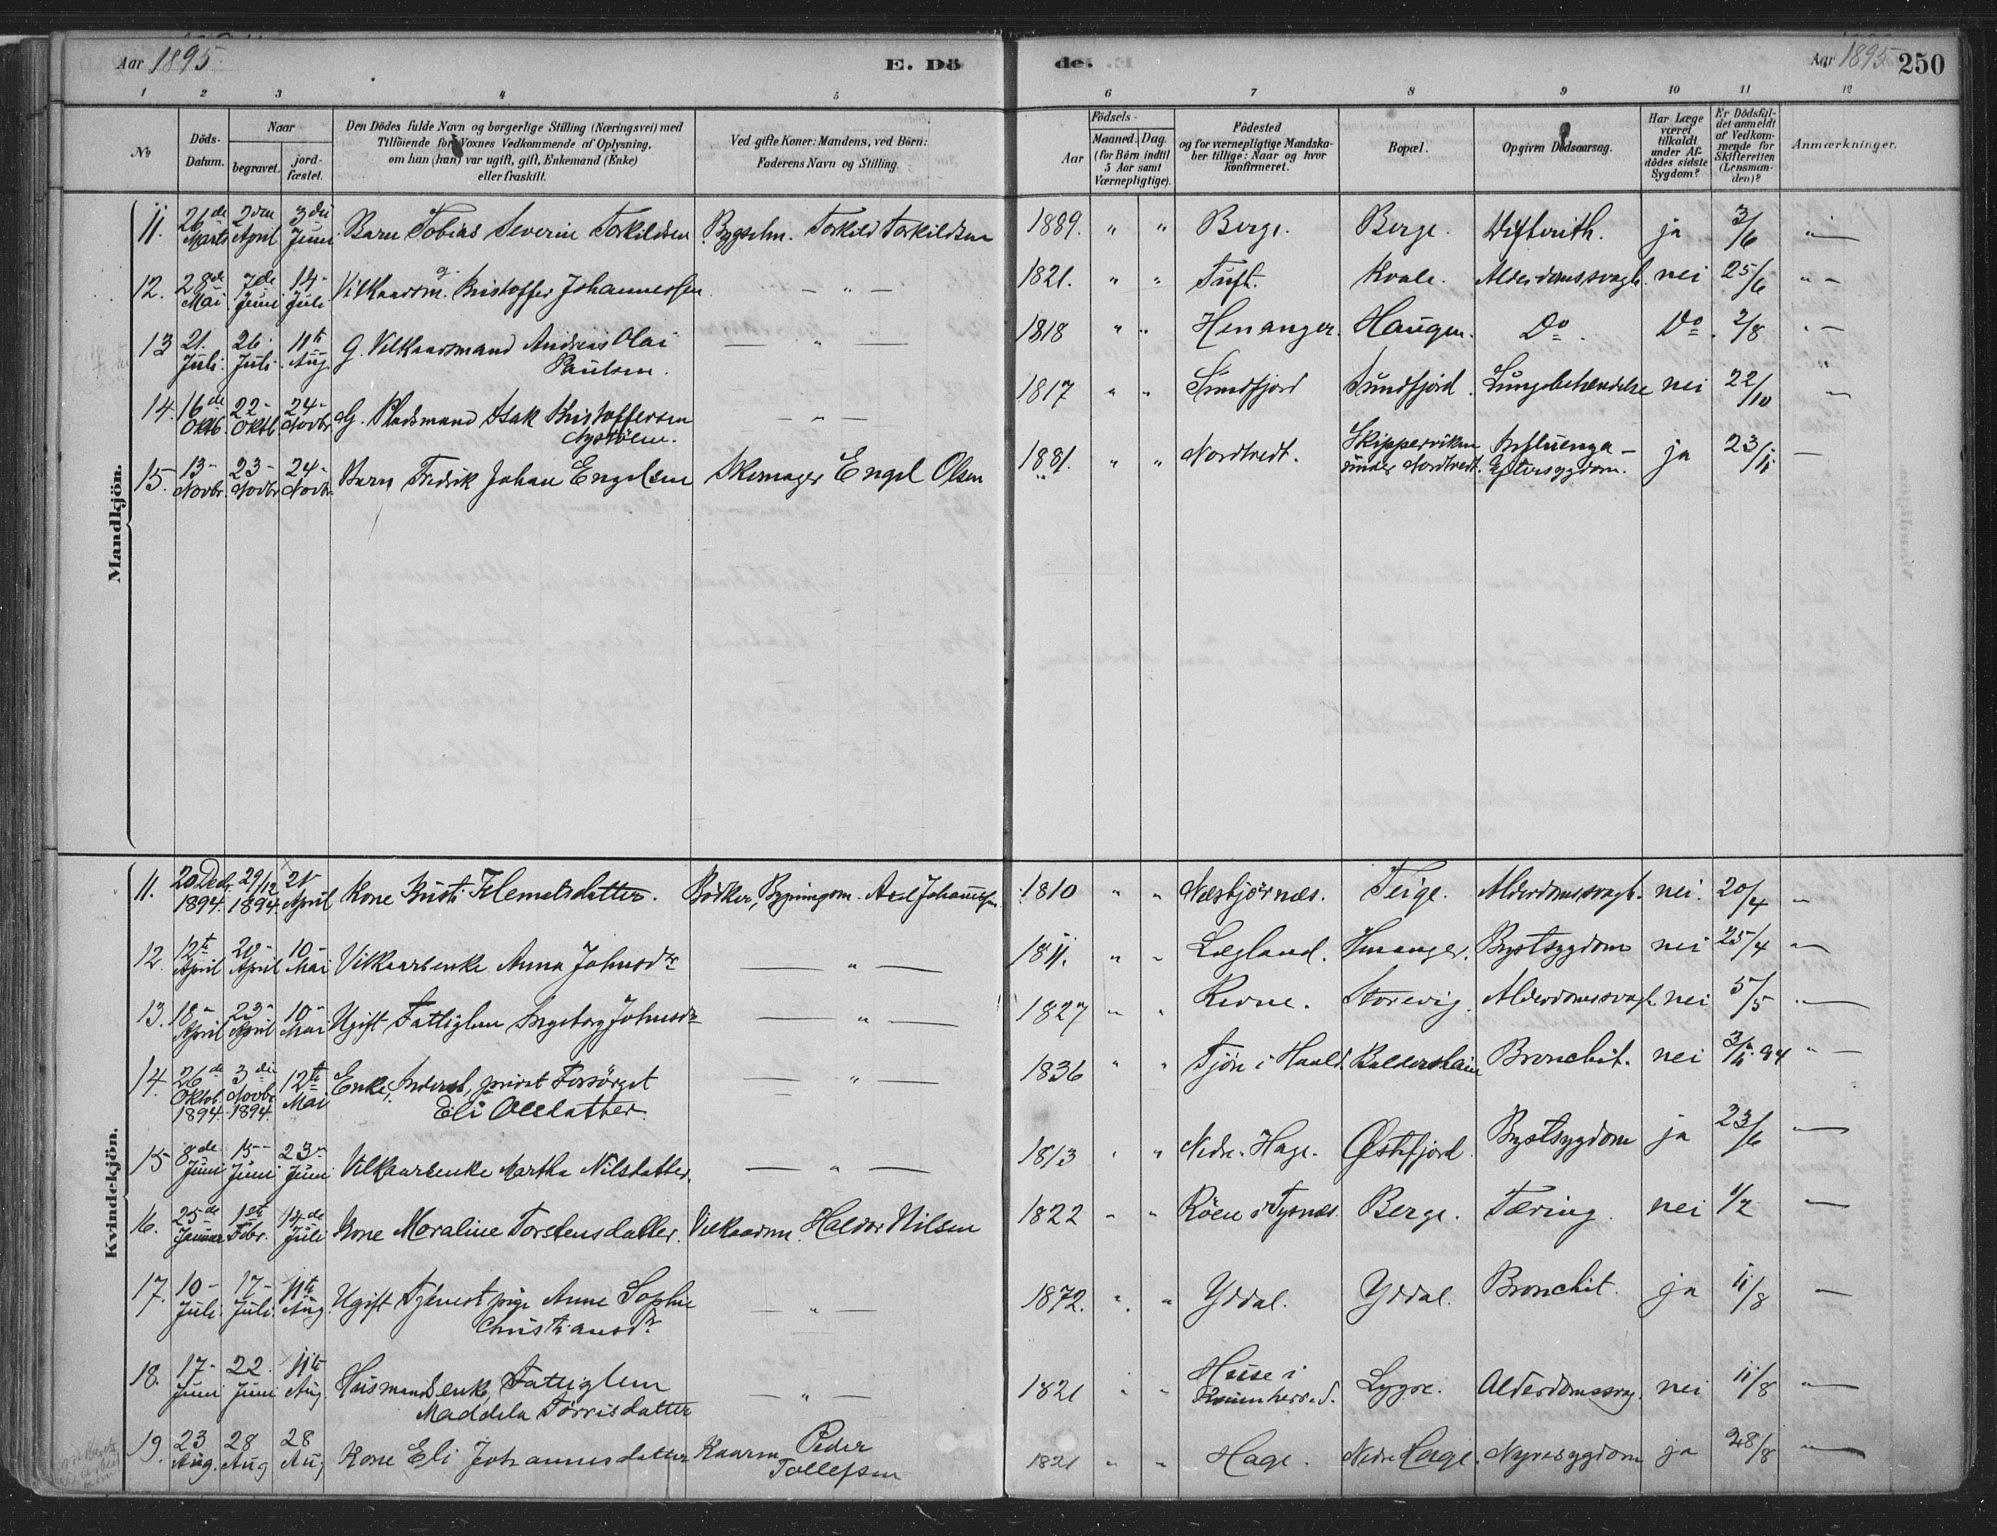 Aar 1895
E. Dö
de.
Aar 1895
250
1 2 3 4 5 6 7 8 9 10 11 12
No
Döds-Datum.
Naar
begravet.
jord-fæstet.
Den Dödes fulde Navn og borgerlige Stilling (Næringsvei) med
Tilföiende for Voxnes Vedkommende af Oplysning,
om han (hun) var ugift, gift, Enkemand (Enke)
eller fraskilt.
Ved gifte Koner: Mandens, ved Börn:
Faderens Navn og Stilling.
Födsels-
Aar
Maaned. Dag.
(for Börn indtil
5 Aar samt
Værnepligtige).
Födested
og for værnepligtige Mandska-
ber tillige: Naar og hvor
konfirmeret.
Bopæl.
Opgiven Dödsaarsag.
Har Læge
været
tilkaldt
under Af-
dödes sidste
Sygdom?
Er Dödsfal-
det anmeldt
af Vedkom-
mende for
Skifteretten
(Lensman-
den)?
Anmærkninger.
Mandkjön.
11. 26de Marts 2den April 3die Juni Barn Tobias Severin Torkildsen Bygselm. Torkild Torkildsen 1889. " " Berge. Berge. Difterith. ja 3/6 "
12. 28de Mai 7de Juni 14- Juli Vilkaarsm. g. Kristoffer Johannessen - " - 1821. " " Tuft. Kvale. Alderdomssvagh. nei 25/6 "
13 21. Juli 26. Juli 11te Aug. G. Vilkaarsmand Andreas Olai
Paulsen. - " - 1818 " " Henanger. Haugen. Do. Do. 2/8 "
14. 16de Oktb. 22- Oktb 24- Novbr G. Pladsmand Isak Kristoffersen
Nystölen. - " - 1817 " " Sundfjord Sundfjord. Lungebetændelse nei 22/10 "
15. 13- Novbr. 23- Novbr 24- Novbr. Barn Fredrik Johan Engelsen Skomager Engel Olsen 1881. " " Nordtvedt. Skipperviken
under Nordtvedt. Influenza-
Eftersygdom. ja 23/11 -
Kvindekjön.
11. 20 Decbr. 1894. 29/12 1894. 21 April Kone Kristi Klemetsdatter. Bödker, Bygningsm. Axel Johannesen. 1810 " " Næsbjörnæs. Teige. Alderdomssvagh. nei. 20/4 "
12. 12te April 20- April 10- Mai Vilkaarsenke Anna Johnsdtr - " - 1811. " " Lægland. Henanger. Brystsygdom nei 25/4 "
13. 18- April 23- April 10- Mai Ugift Fattiglem Ingeborg Johnsdr - " - 1827 " " Kirne. Storevig. Alderdomssvagh nei 5/5 "
14. 26de Oktob. 1894. 3die Novbr. 1894. 12te Mai Enke, Inderst, privat Forsörget
Eli Olsdatter. - " - 1836 " " Tjön i Haald. Baldersheim Bronchit. nei 3/11 94 "
15 8de Juni 15- Juni 23- Juni Vilkaarsenke Martha Nilsdatter. - " - 1813 " " Nedre-Hage. Østefjord. Brystsygdom ja 23/6 "
16. 25de Januar 1ste Febr. 14de Juli Kone Moraline Torstensdatter. Vilkaarm. Haldor Nilsen 1822 " " Röen i Tysnæs. Berge. Tæring. nei 1/2 "
17. 10- Juli. 17- Juli. 11te Aug. Ugift Tjenestpige Anne Sophie
Christiansdr. - " - 1872. " " Yddal. Yddal. Bronchit. ja 11/8 -
18. 17- Juni 22. Juni 11te Aug Husmandsenke, Fattiglem
Maddela Törrisdatter - " - 1821 " " Huse i
Kvinnherred. Lygre. Alderdomssvag. nei 11/8 "
19. 23 Aug. 28 Aug 28 Aug Kone Eli Johannesdatter Kaarm. Peder
Tollefsen 1821 " " Hage. Nedre Hage. Nyresygdom ja 28/8 "